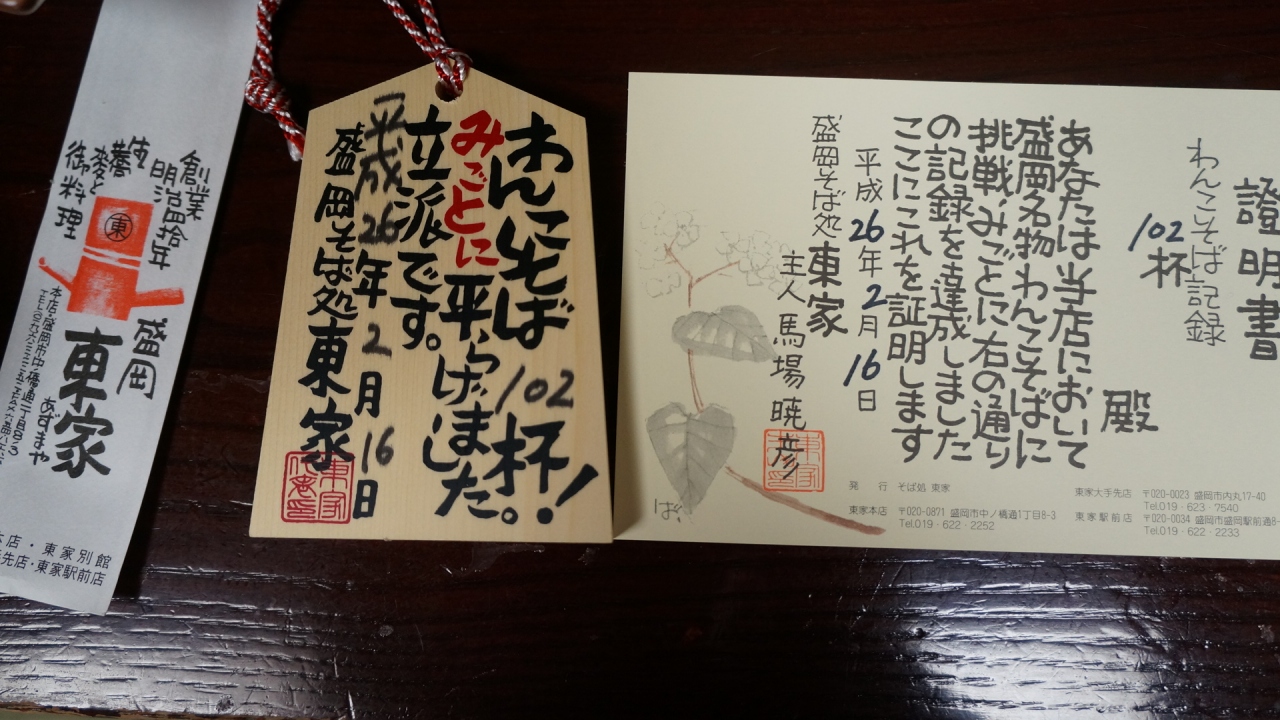 創業
明治四拾年
生蕎
麥と
御料理
東
盛岡
東家
あずまや
本店・東家別館
手先店・東家駅前店
わんこそば102杯!
みごとに平らげました。
立派です。
平成26年2月16日
盛岡そば処東家
證明書
わんこそば記録
102杯
殿
あなたは当店において
盛岡名物わんこそばに
挑戦みごとに右の通り
の記録を達成しました
ここにこれを証明します
平成26年2月16日
盛岡そば処東家
主人馬場暁彦
そば
発行 そば処 東家
東家本店 〒020-0871 盛岡市中ノ橋通1丁目8-3
Tel.019・622・2252
東家大手先店 〒020-0023 盛岡市内丸17-40
Tel.019・623・7540
東家駅前店 〒020-0034 盛岡市盛岡駅前通8-
Tel.019・622・2233